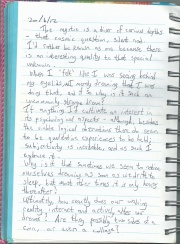 20/6/12
The mystic is a diver of varied depths
- that cosmic question, silent and
I'd rather be known as me because there
is an interesting quality to that special
unknown.
When I "felt" like I was seeing behind
my eyelids, all merely dreaming that I was
doing that, and if so why is it such an
uncommonly strange known?
If anything, it cultivates an interest in
its psychological aspects - although besides
the visible typical distractions there do seem
to be qualitative experiences to be had,
subjectivity is inevitable, and as such I
explored it -
Why is it that sometimes we seem to notice
ourselves dreaming as soon as we drift to
sleep, but most other times it is only hours
thereafter?
Ultimately, how exactly does our waking
reality interact and actively alter our
dreams? Are they possibly two sides of a
coin, or even a collage?